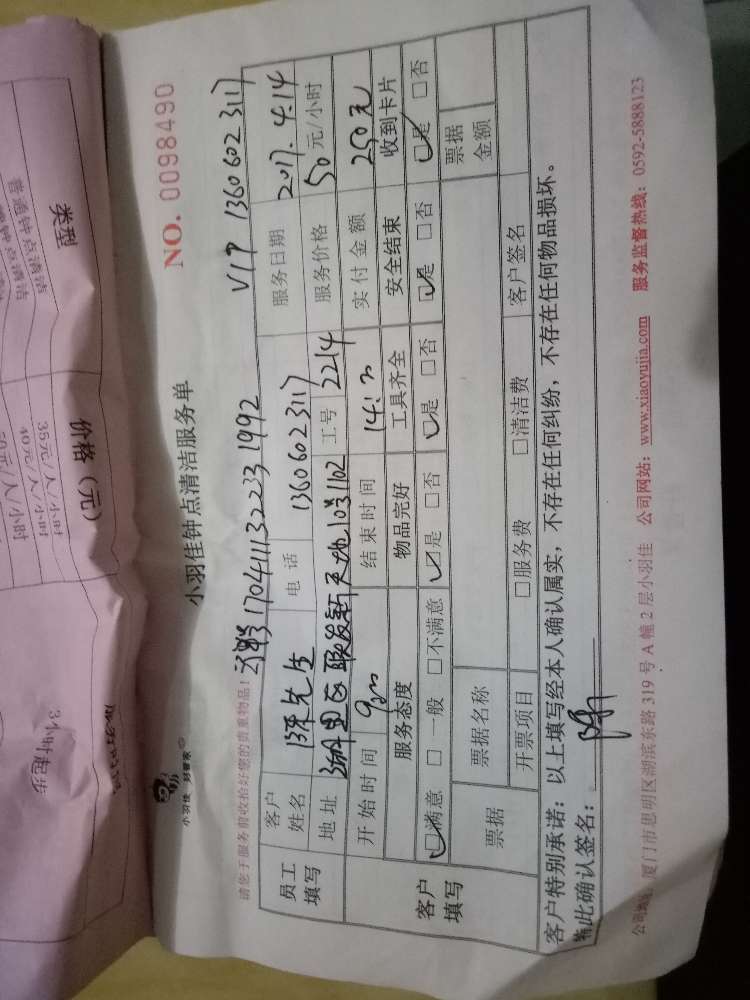 类型
价格（元）
35元/人/小时
40元/人/小时
3小时起步
小羽佳 好管家
小羽佳钟点清洁服务单
NO. 0098490
请您于服务前收拾好您的贵重物品！
170411132233 1992
VIP 13606023117
员工填写
客户姓名 陈先生 电话 13606023117 服务日期 2017.4.14
地址 10号1102 工号 2214 服务价格 50元/小时
开始时间 结束时间 实付金额 250元
客户填写
服务态度 物品完好 工具齐全 安全结束 收到卡片
☑满意 □一般 □不满意 ☑是 □否 ☑是 □否 ☑是 □否 ☑是 □否
票据 票据名称 票据金额
开票项目 □服务费 □清洁费 客户签名
客户特别承诺：以上填写经本人确认属实，不存在任何纠纷，不存在任何物品损坏。
特此确认签名：
公司地址：厦门市思明区湖滨东路 319 号 A 幢 2 层小羽佳 公司网站：www.xiaoyujia.com 服务监督热线：0592-5888123